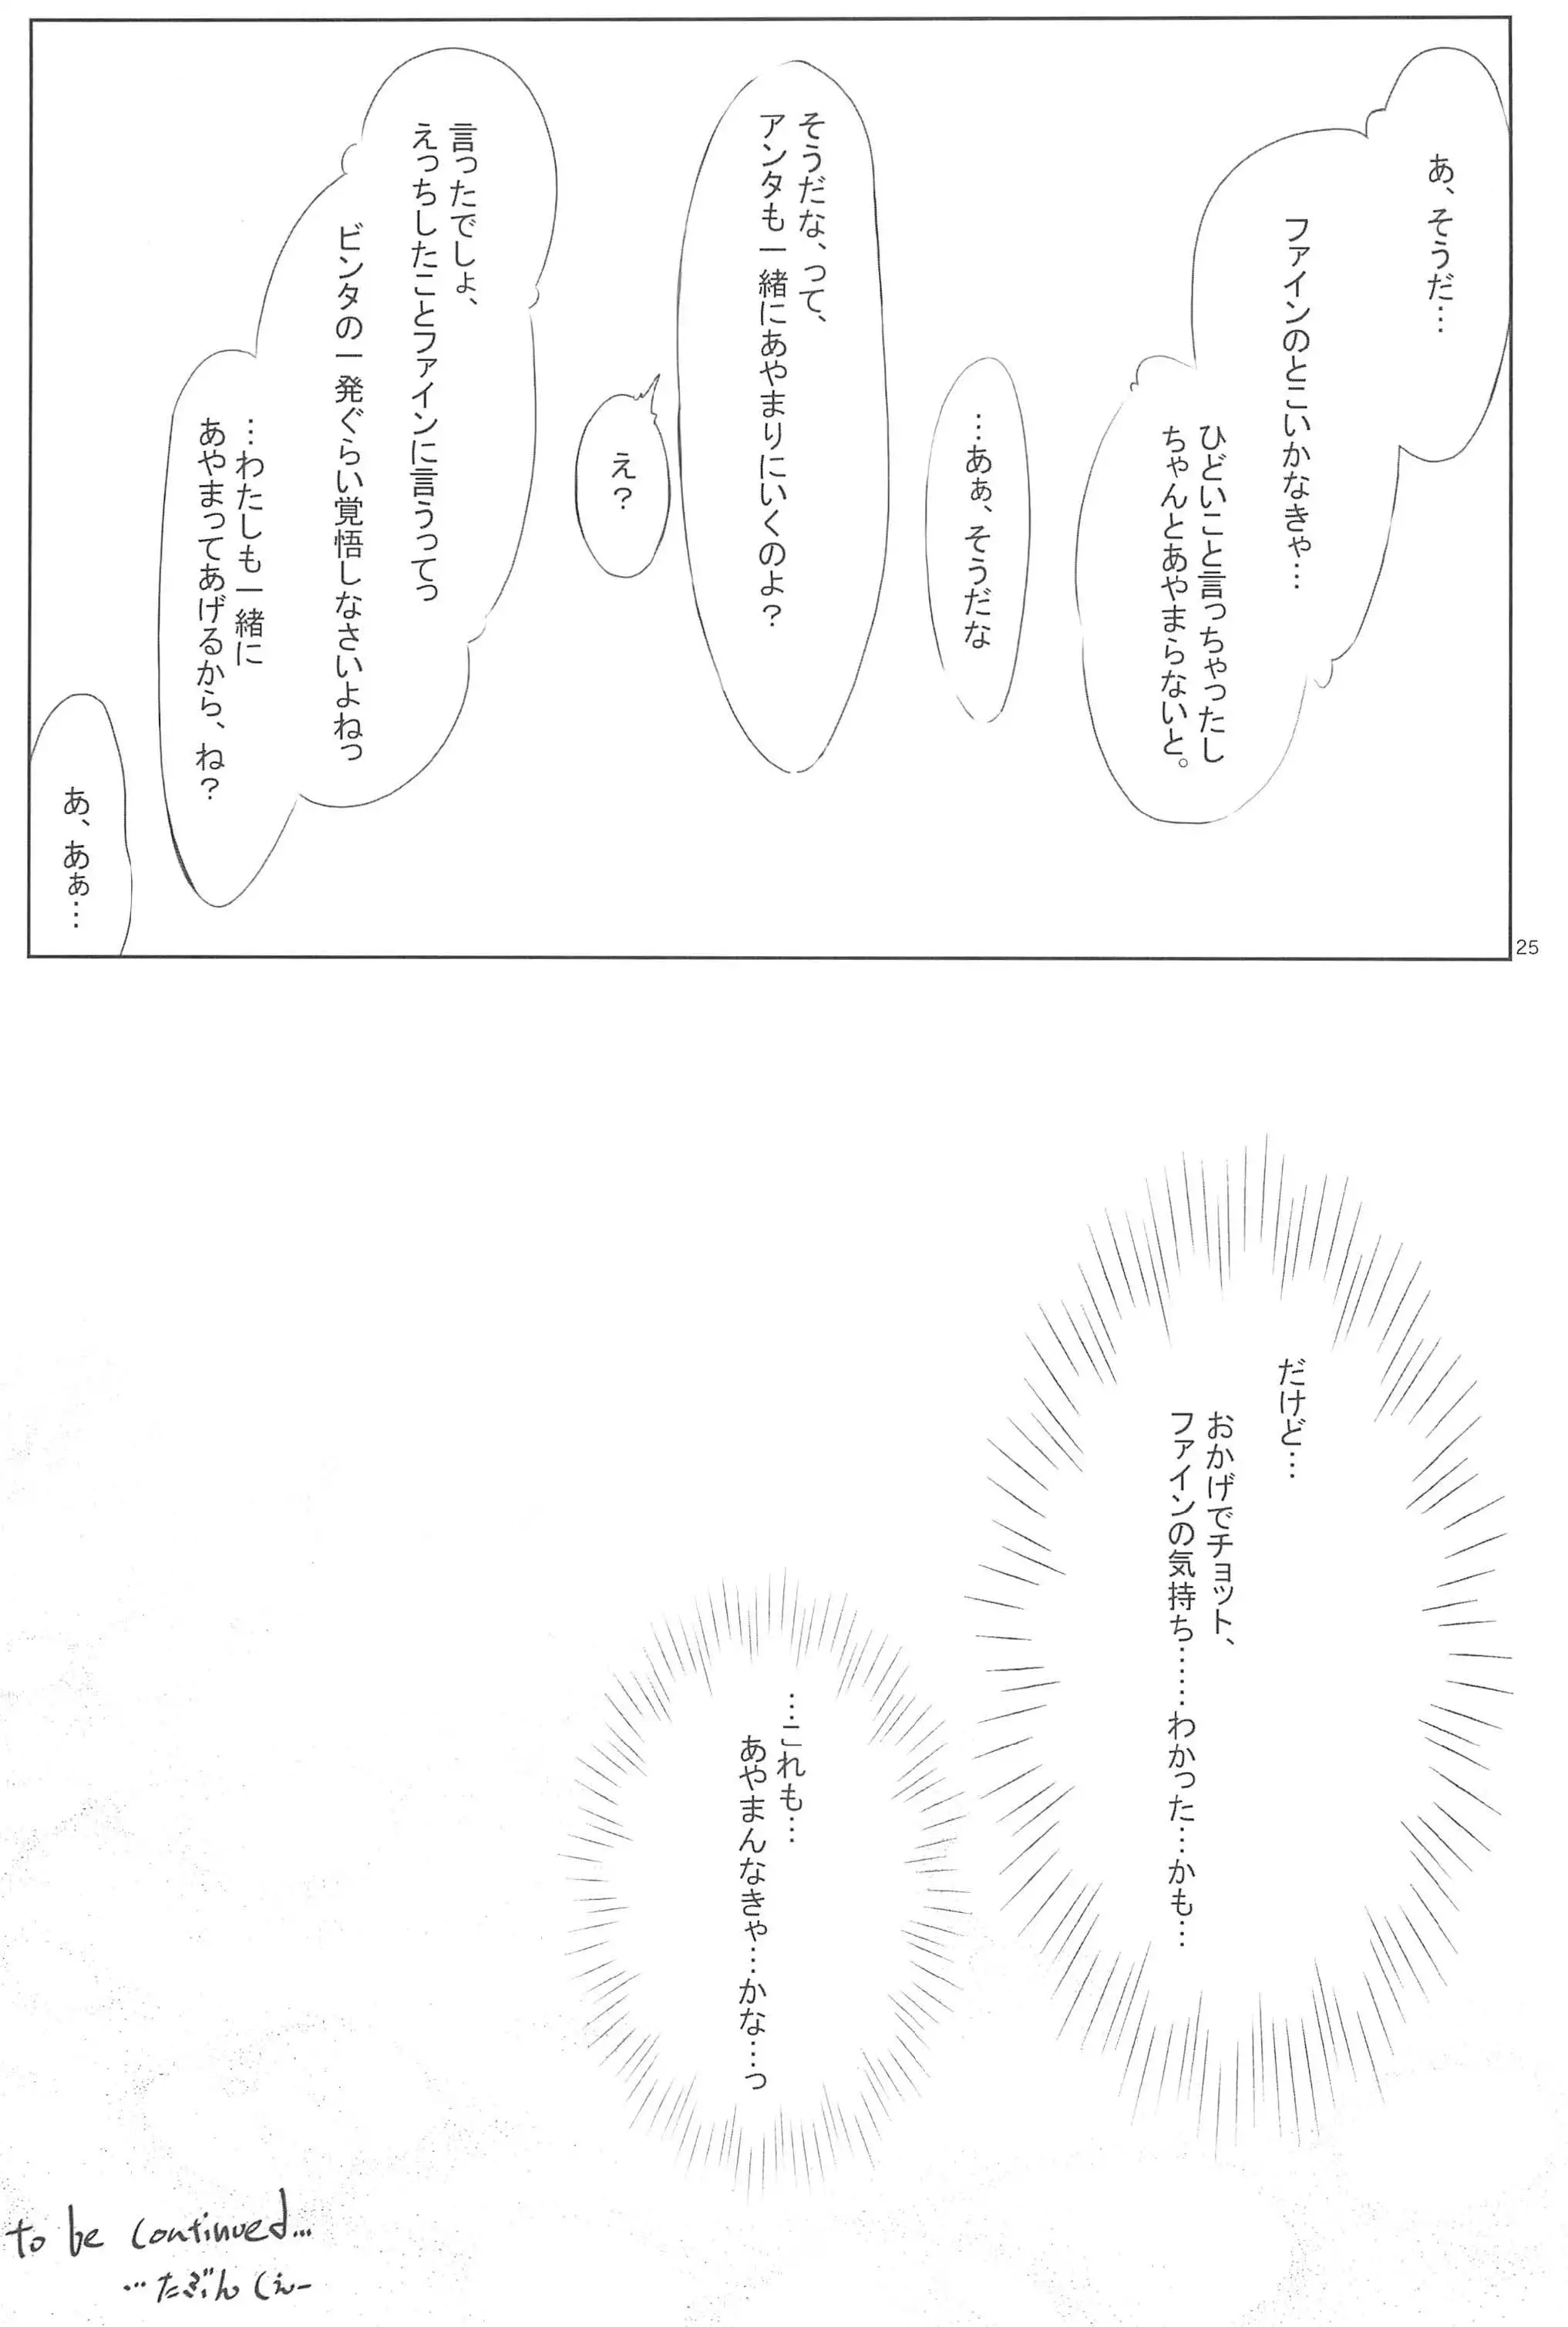 あ、そうだ…
ファインのとこいかなきゃ…
ひどいこと言っちゃったし
ちゃんとあやまらないと。
…あぁ、そうだな
そうだな、って、
アンタも一緒にあやまりにいくのよ？
え？
言ったでしょ、
えっちしたことファインに言うってっ
ビンタの一発ぐらい覚悟しなさいよねっ
…わたしも一緒に
あやまってあげるから、ね？
あ、あぁ…
25
だけど…
おかげでチョット、
ファインの気持ち……わかった…かも…
…これも…
あやまんなきゃ…かな…っ
to be continued...
…たぶんしぇー